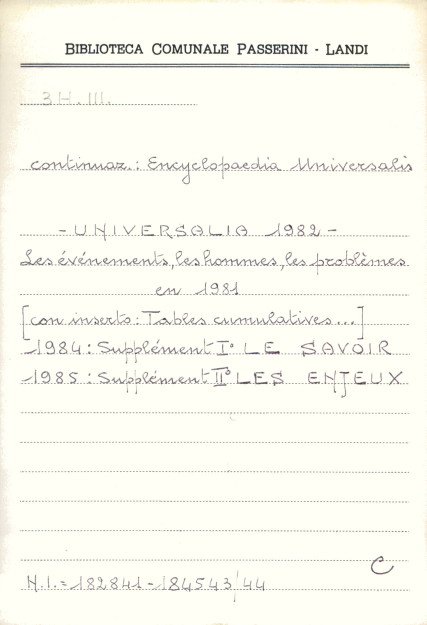 BIBLIOTECA COMUNALE PASSERINI - LANDI
3 H. III.
continuaz.: Encyclopaedia Universalis
- UNIVERSALIA 1982 -
Les événements, les hommes, les problèmes
en 1981
[con inserto: Tables cumulatives...]
1984: Supplément I° LE SAVOIR
1985: Supplément II° LES ENJEUX
C
N.I. = 182841 - 184543/44